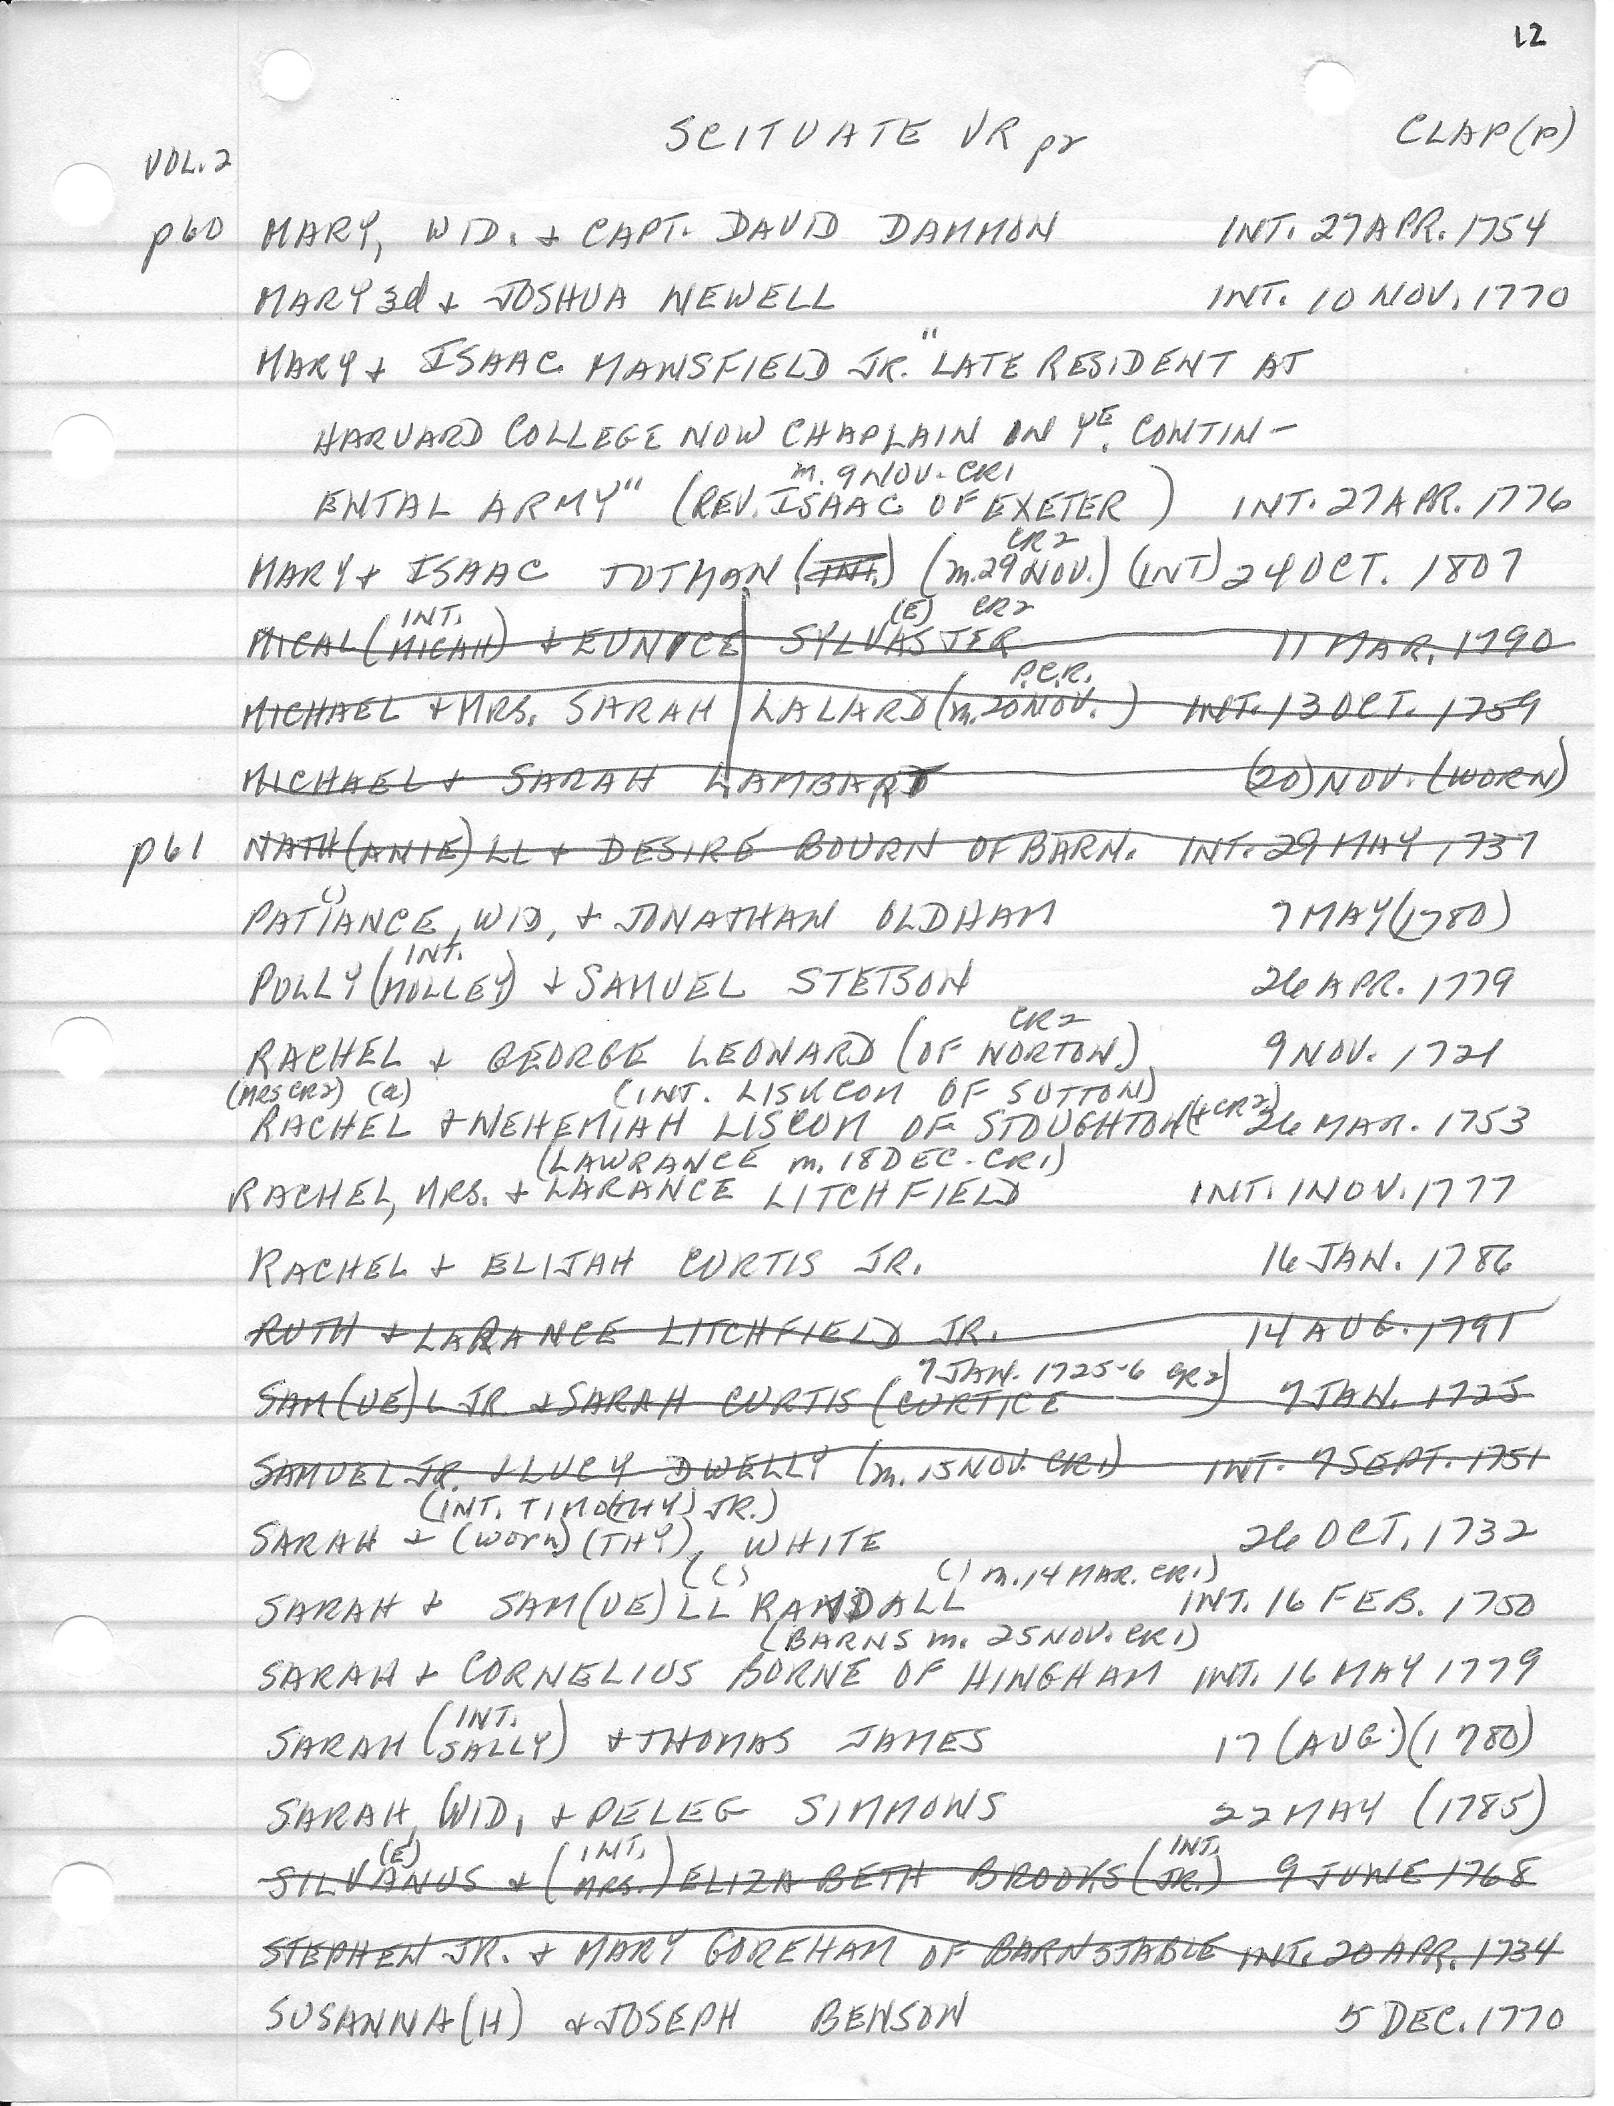 12
SCITUATE VR pr CLAP(P)
VOL. 2
p60 MARY, WID. & CAPT. DAVID DAMMON INT. 27 APR. 1754
MARY 3d & JOSHUA NEWELL INT. 10 NOV. 1770
MARY & ISAAC MANSFIELD JR. "LATE RESIDENT AT
HARVARD COLLEGE NOW CHAPLAIN IN YE. CONTIN-
m. 9 NOV. CR1
ENTAL ARMY" (REV. ISAAC OF EXETER ) INT. 27 APR. 1776
CR2
MARY & ISAAC TOTMAN (INT.) (m. 29 NOV.) (INT) 24 OCT. 1807
INT. (E) CR2
MICAL (MICAH) & EUNICE SYLVASTER 11 MAR. 1790
P.C.R.
MICHAEL & MRS. SARAH LALARD (m. 20 NOV. ) INT. 13 OCT. 1759
MICHAEL & SARAH LAMBART (20) NOV. (WORN)
p61 NATH(ANIE)LL & DESIRE BOURN OF BARN. INT. 29 MAY 1737
()
PATIANCE, WID, & JONATHAN OLDHAM 7 MAY (1780)
INT.
POLLY (MOLLEY) & SAMUEL STETSON 26 APR. 1779
CR2
RACHEL & GEORGE LEONARD (OF NORTON) 9 NOV. 1721
(MRS CR2) (a) (INT. LISKCOM OF SUTTON)
RACHEL & NEHEMIAH LISCOM OF STOUGHTON (& CR2) 26 MAR. 1753
(LAWRANCE m. 18 DEC. CR1)
RACHEL, MRS. & LARANCE LITCHFIELD INT. 1 NOV. 1777
RACHEL & ELIJAH CURTIS JR. 16 JAN. 1786
RUTH & LARANCE LITCHFIELD JR. 14 AUG. 1791
7 JAN. 1725-6 CR2)
SAM(UE)L JR. & SARAH CURTIS (CURTICE 7 JAN. 1725
SAMUEL JR. & LUCY DWELLY (m. 15 NOV. CR1) INT. 7 SEPT. 1751
(INT. TIMO(THY) JR.)
SARAH & (worn) (THY), WHITE 26 OCT. 1732
(() () m. 14 MAR. CR1)
SARAH & SAM(UE)LL RANDALL INT. 16 FEB. 1750
(BARNS m. 25 NOV. CR1)
SARAH & CORNELIUS BORNE OF HINGHAM INT. 16 MAY 1779
INT.
SARAH (SALLY) & THOMAS JAMES 17 (AUG.) (1780)
SARAH, WID, & PELEG SIMMONS 22 MAY (1785)
(E) INT. INT.
SILVANUS & (MRS.) ELIZABETH BROOKS (JR.) 9 JUNE 1768
STEPHEN JR. & MARY GOREHAM OF BARNSTABLE INT. 20 APR. 1734
SUSANNA(H) & JOSEPH BENSON 5 DEC. 1770